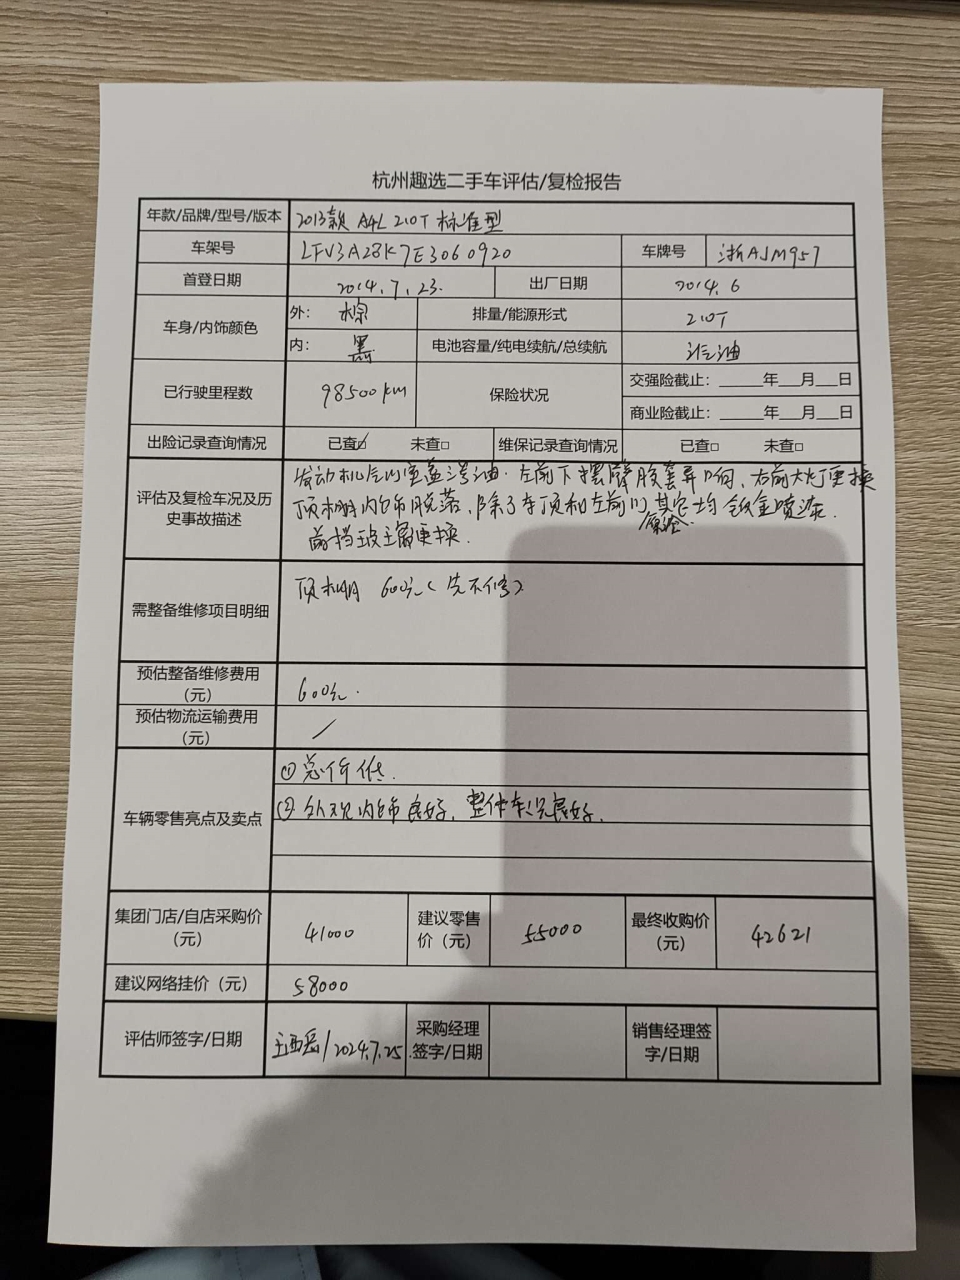 杭州趣选二手车评估/复检报告
年款/品牌/型号/版本 2013款 A4L 2.0T 标准型
车架号 LFV3A28K7E3060920 车牌号 浙AJM957
首登日期 2014.7.23. 出厂日期 2014.6
车身/内饰颜色 外: 棕 排量/能源形式 2.0T
内: 黑 电池容量/纯电续航/总续航 汽油
已行驶里程数 98500km 保险状况 交强险截止: ____年__月__日
商业险截止: ____年__月__日
出险记录查询情况 已查☑ 未查□ 维保记录查询情况 已查□ 未查□
评估及复检车况及历史事故描述 发动机气门室盖渗油. 左前下摆臂胶套异响, 右前大灯更换
顶棚内饰脱落, 除了车顶和左前门 其它均 钣金喷漆.
原漆
前挡玻璃更换.
需整备维修项目明细 顶棚 600元(先不修)
预估整备维修费用(元) 600元.
预估物流运输费用(元) /
车辆零售亮点及卖点 ① 总价低.
② 外观内饰良好, 整体车况良好.
集团门店/自店采购价(元) 41000 建议零售价(元) 55000 最终收购价(元) 42621
建议网络挂价(元) 58000
评估师签字/日期 /2024.7.25. 采购经理签字/日期 销售经理签字/日期